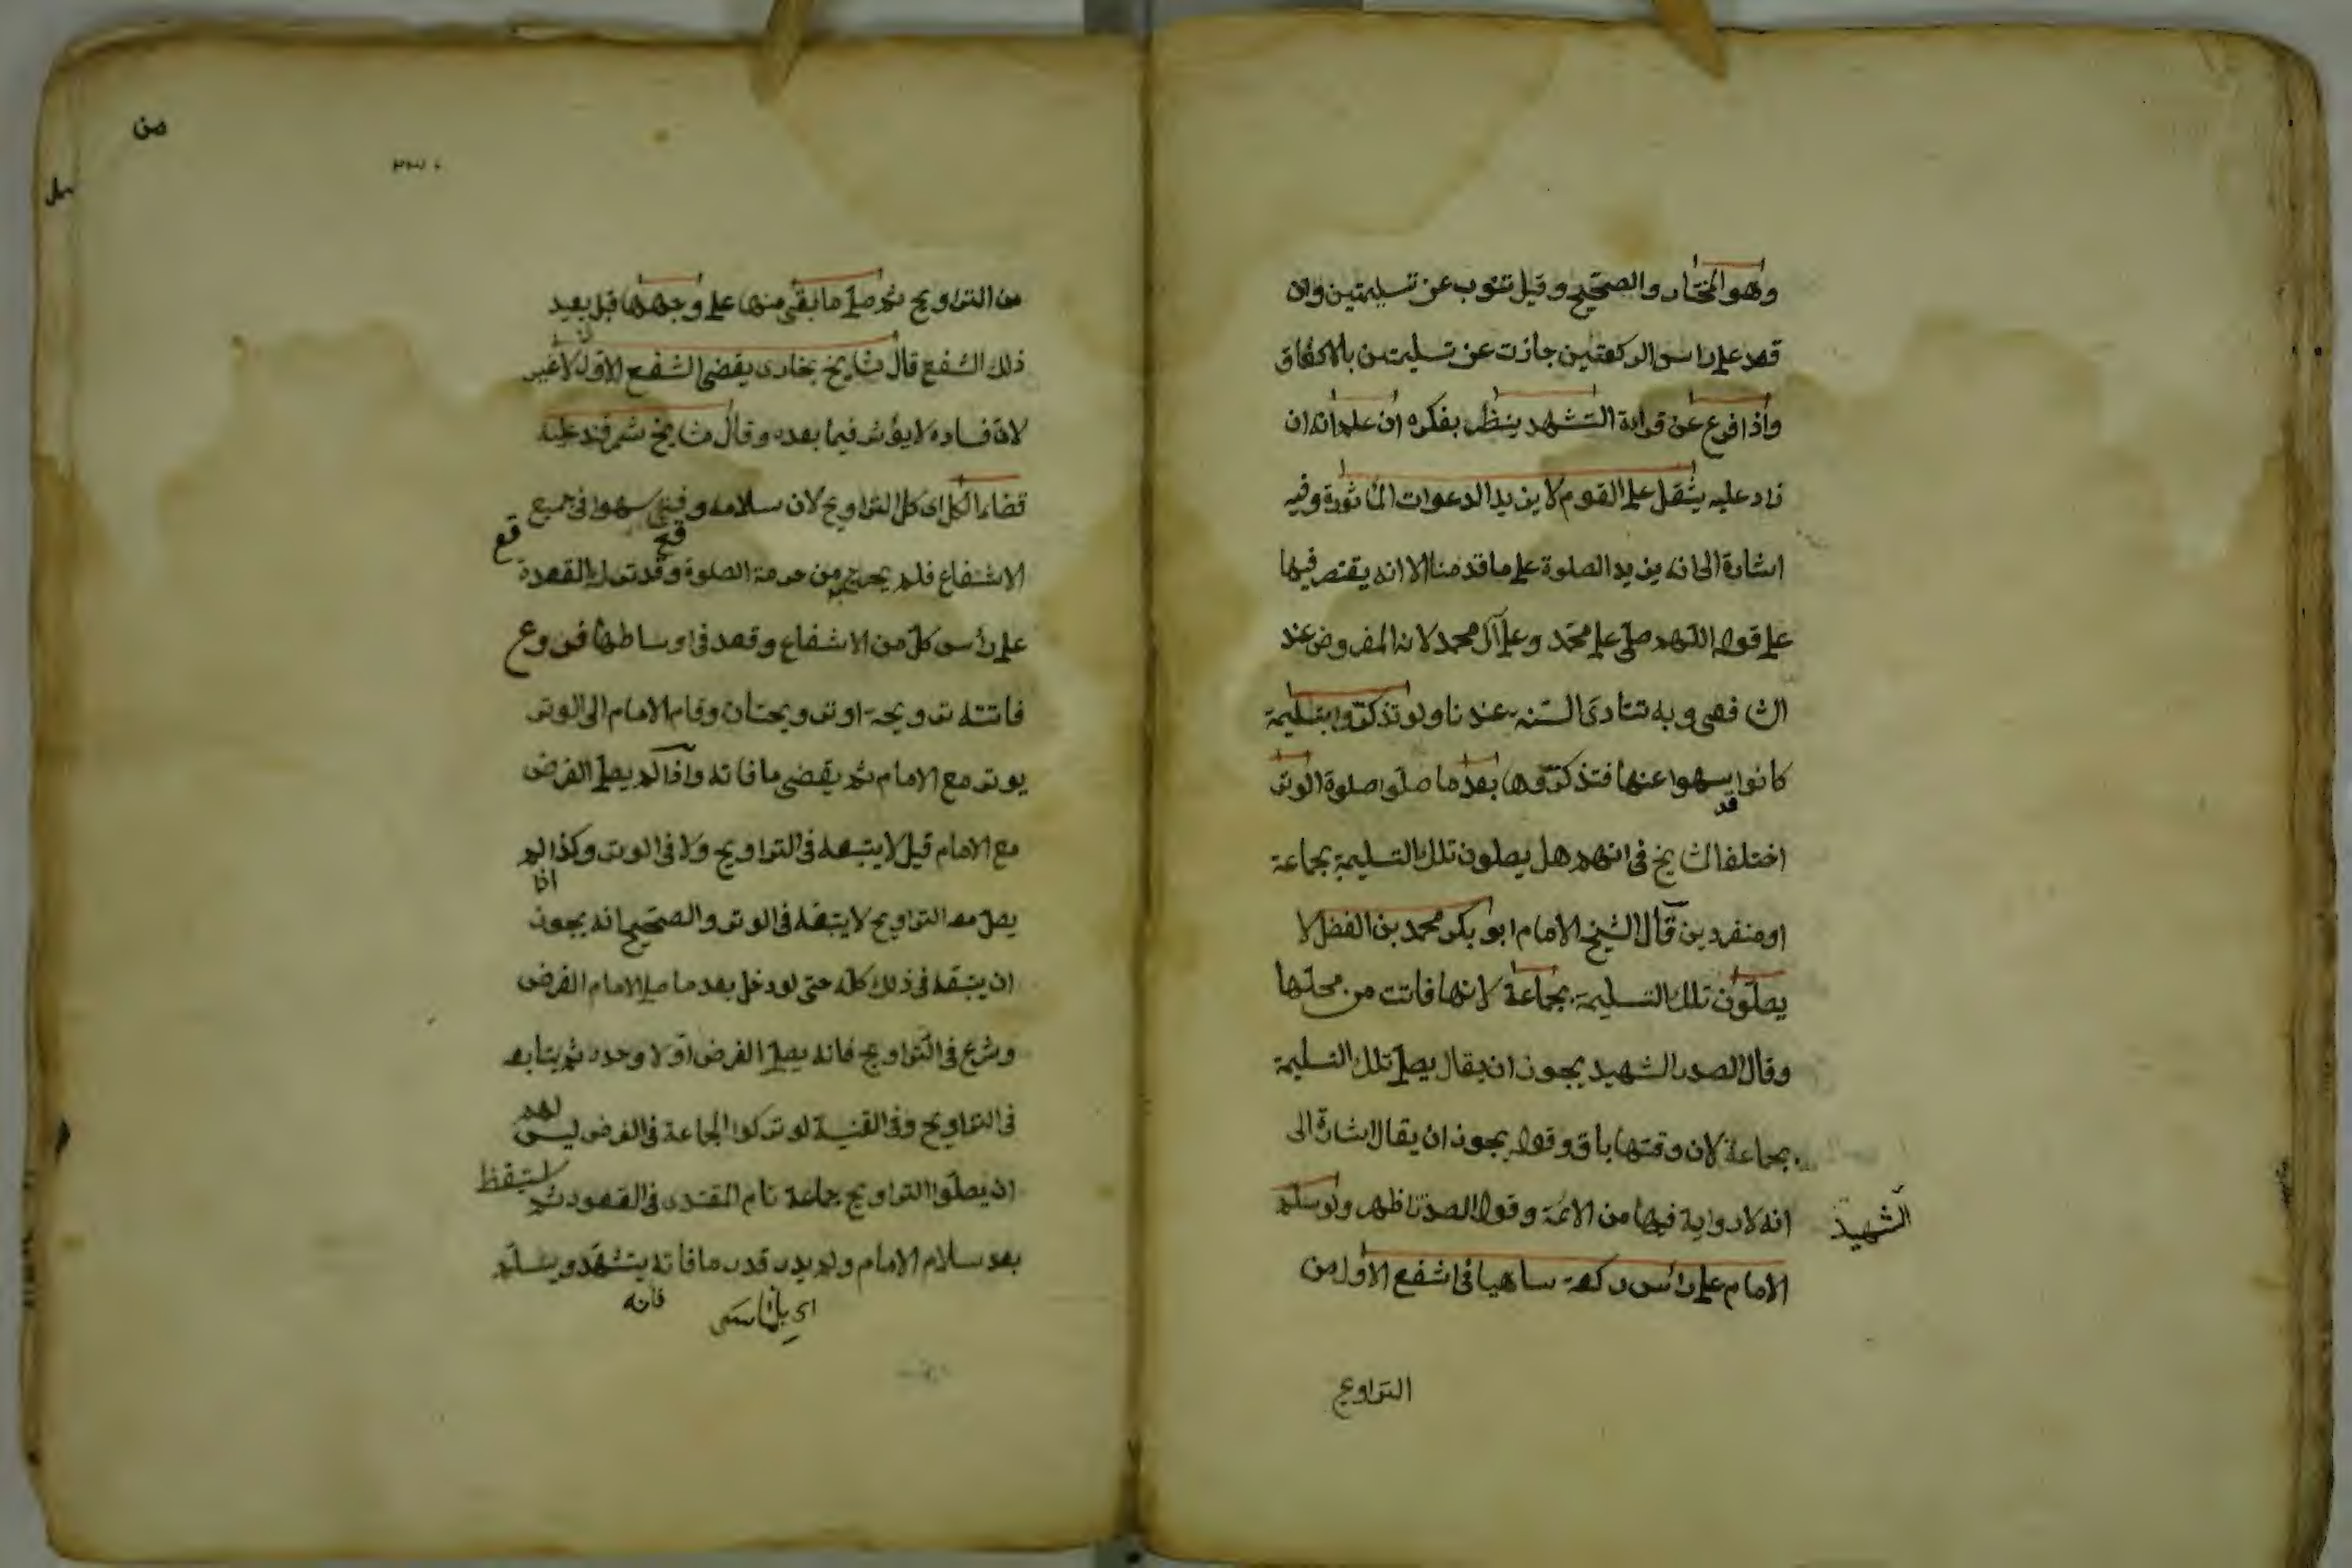 وهو المختار والصحيح وقيل تنوب عن تسليمتين وان
قعد على راس الركعتين جازت عن تسليمتين بالاتفاق
واذا فرغ عن قراءة التشهد ينظر بفكره ان علم انه ان
زاد عليه يثقل على القوم لا يزيد الدعوات الماثورة وفيه
اشارة الى انه يزيد الصلوة على ما قدمنا الا انه يقتصر فيها
على قوله اللهم صل على محمد وعلى آل محمد لانه المفروض عند
الشافعى وبه تتادى السنة عندنا ولو تذكروا بتسليمة
كانوا سهوا عنها فتذكروها بعد ما صلوا صلوة الوتر
قد
اختلف المشايخ فى انهم هل يصلون تلك التسليمة بجماعة
او منفردين قال الشيخ الامام ابو بكر محمد بن الفضل لا
يصلون تلك التسليمة بجماعة لانها فاتت من محلها
وقال الصدر الشهيد يجوز ان يقال يصلى تلك التسليمة
بجماعة لان وقتها باق وقوله يجوز ان يقال اشارة الى
انه لا رواية فيها من الائمة وقول الصدر ظهر ولو سلم
الشهيد
الامام على رأس ركعة ساهيا فى اشفع الاول من
التراويح
من
من التراويح ثم صلى ما بقى منها على وجهها قبل يعيد
ذلك الشفع قال مشايخ بخارى يقضى الشفع الاول لا غير
لان فساده لا يؤثر فيما بعده وقال مشايخ سمرقند عليه
قضاء الكل اى كل التراويح لان سلامه وقع سهوا فى جميع
الاشفاع فلم يخرج من حرمة الصلوة وقد ترك القعدة
على رأس كل من الاشفاع وقعد فى اوساطها فروع
فاتته ترويحة او ترويحتان وقام الامام الى الوتر
يوتر مع الامام ثم يقضى ما فاته واذا لم يصل الفرض
مع الامام قيل لا يتبعه فى التراويح ولا فى الوتر وكذا لم
اذا
يصل معه التراويح لا يتبعه فى الوتر والصحيح انه يجوز
ان يتبعه فى ذلك كله حتى لو دخل بعد ما صلى الامام الفرض
وشرع فى التراويح فانه يصلى الفرض اولا وحده ثم يتابعه
فى التراويح وفى القنية لو تركوا الجماعة فى الفرض ليس لهم
ان يصلوا التراويح جماعة نام المقتدى فى القعود ثم استيقظ
بعد سلام الامام ولم يدر قدر ما فاته يتشهد ويسلم
فانه